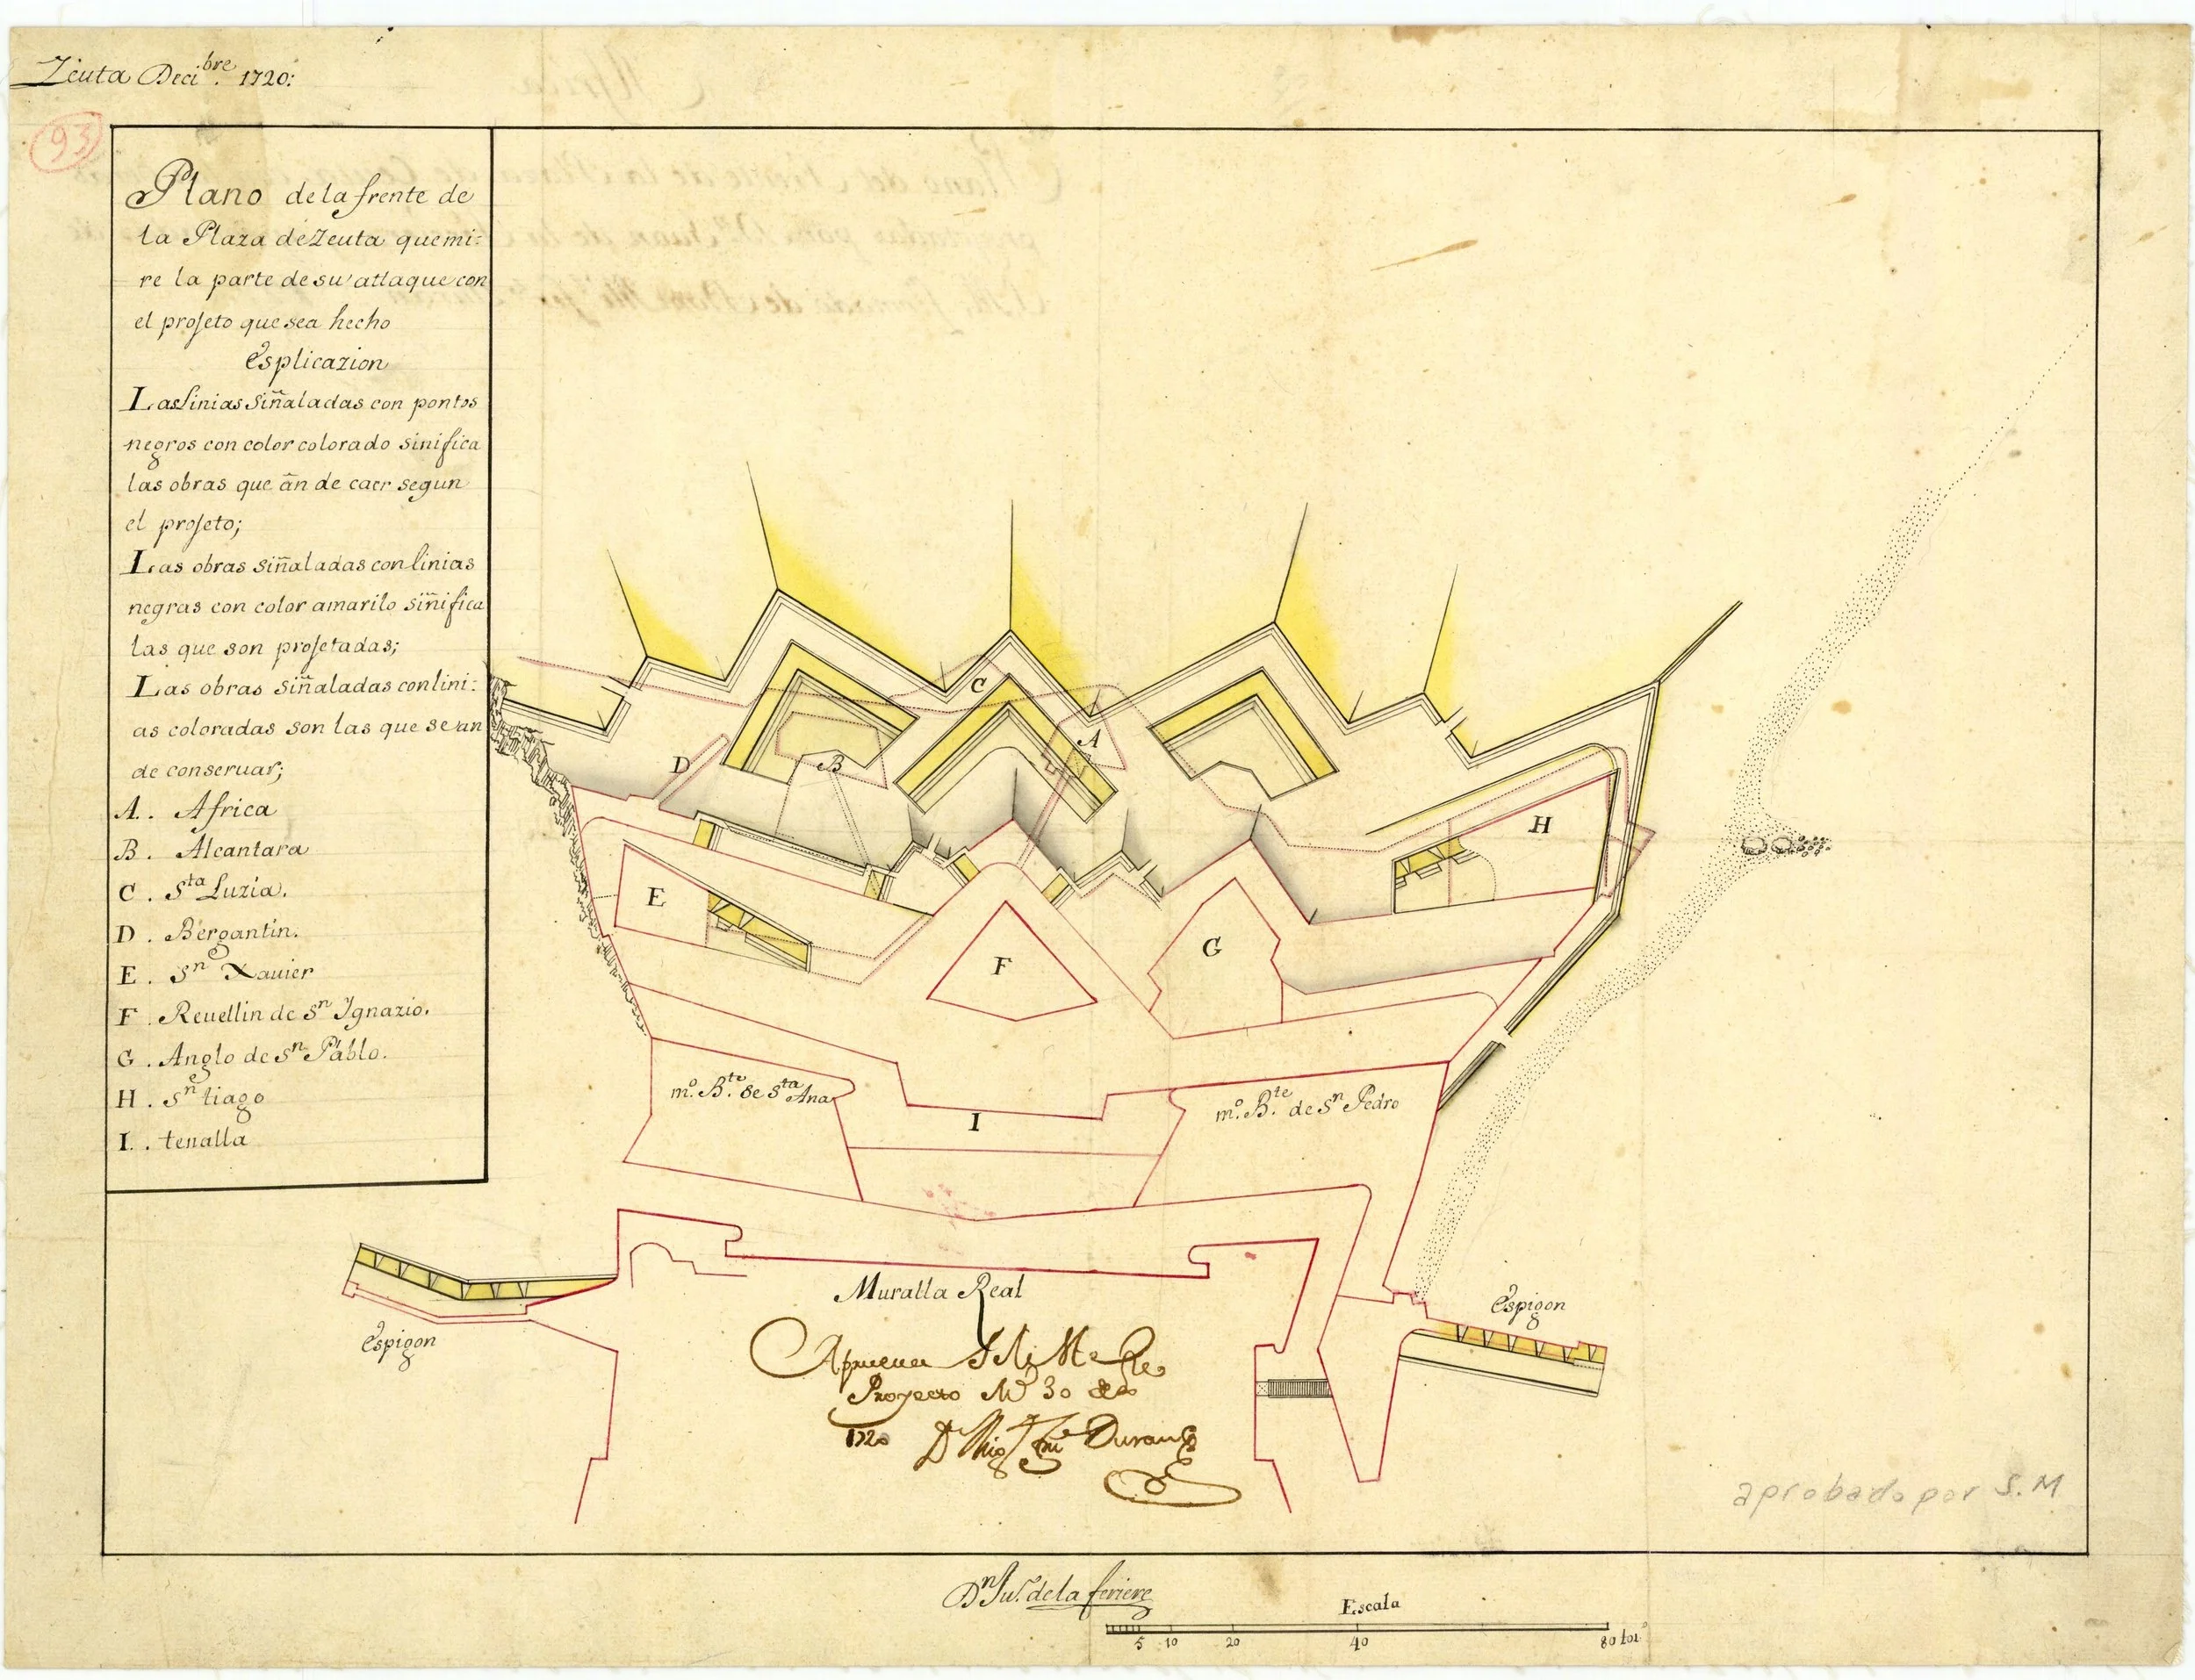 Zeuta Deci.bre 1720:
93
Plano de la frente de
la Plaza de Zeuta que mi:
re la parte de su attaque con
el projeto que sea hecho
Esplicazion
Las linias siñaladas con pontos
negros con color colorado sinifica
las obras que ân de caer segun
el projeto;
Las obras siñaladas con linias
negras con color amarilo siñifica
las que son projetadas;
Las obras siñaladas con lini:
as coloradas son las que se an
de conseruar;
A. . Africa
B . Alcantara
C . Sta Luzia.
D . Bergantin.
E . Sn Xauier
F . Reuellin de Sn Ignazio.
G . Anglo de Sn Pablo.
H . Sn tiago
I . . tenalla
C
A
D
B
H
E
F
G
mo. Bte. de Sta Ana
I
mo. Bte. de Sn Pedro
Muralla Real
Espigon
Espigon
Aprueua
Proyecto 30
1720 Duran
aprobado por S.M
Dn Ju. de la feriere
Escala
5 10 20 40 80 toi.